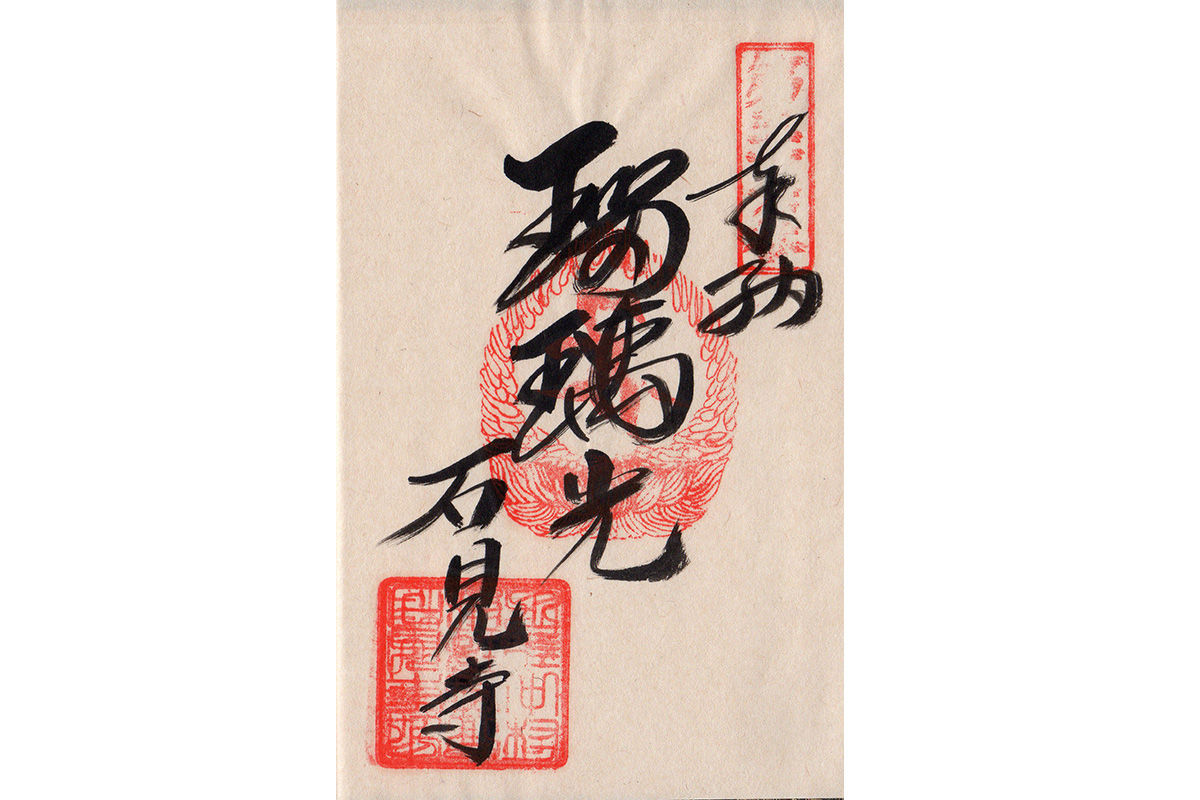 奉納
瑠璃光
石見寺